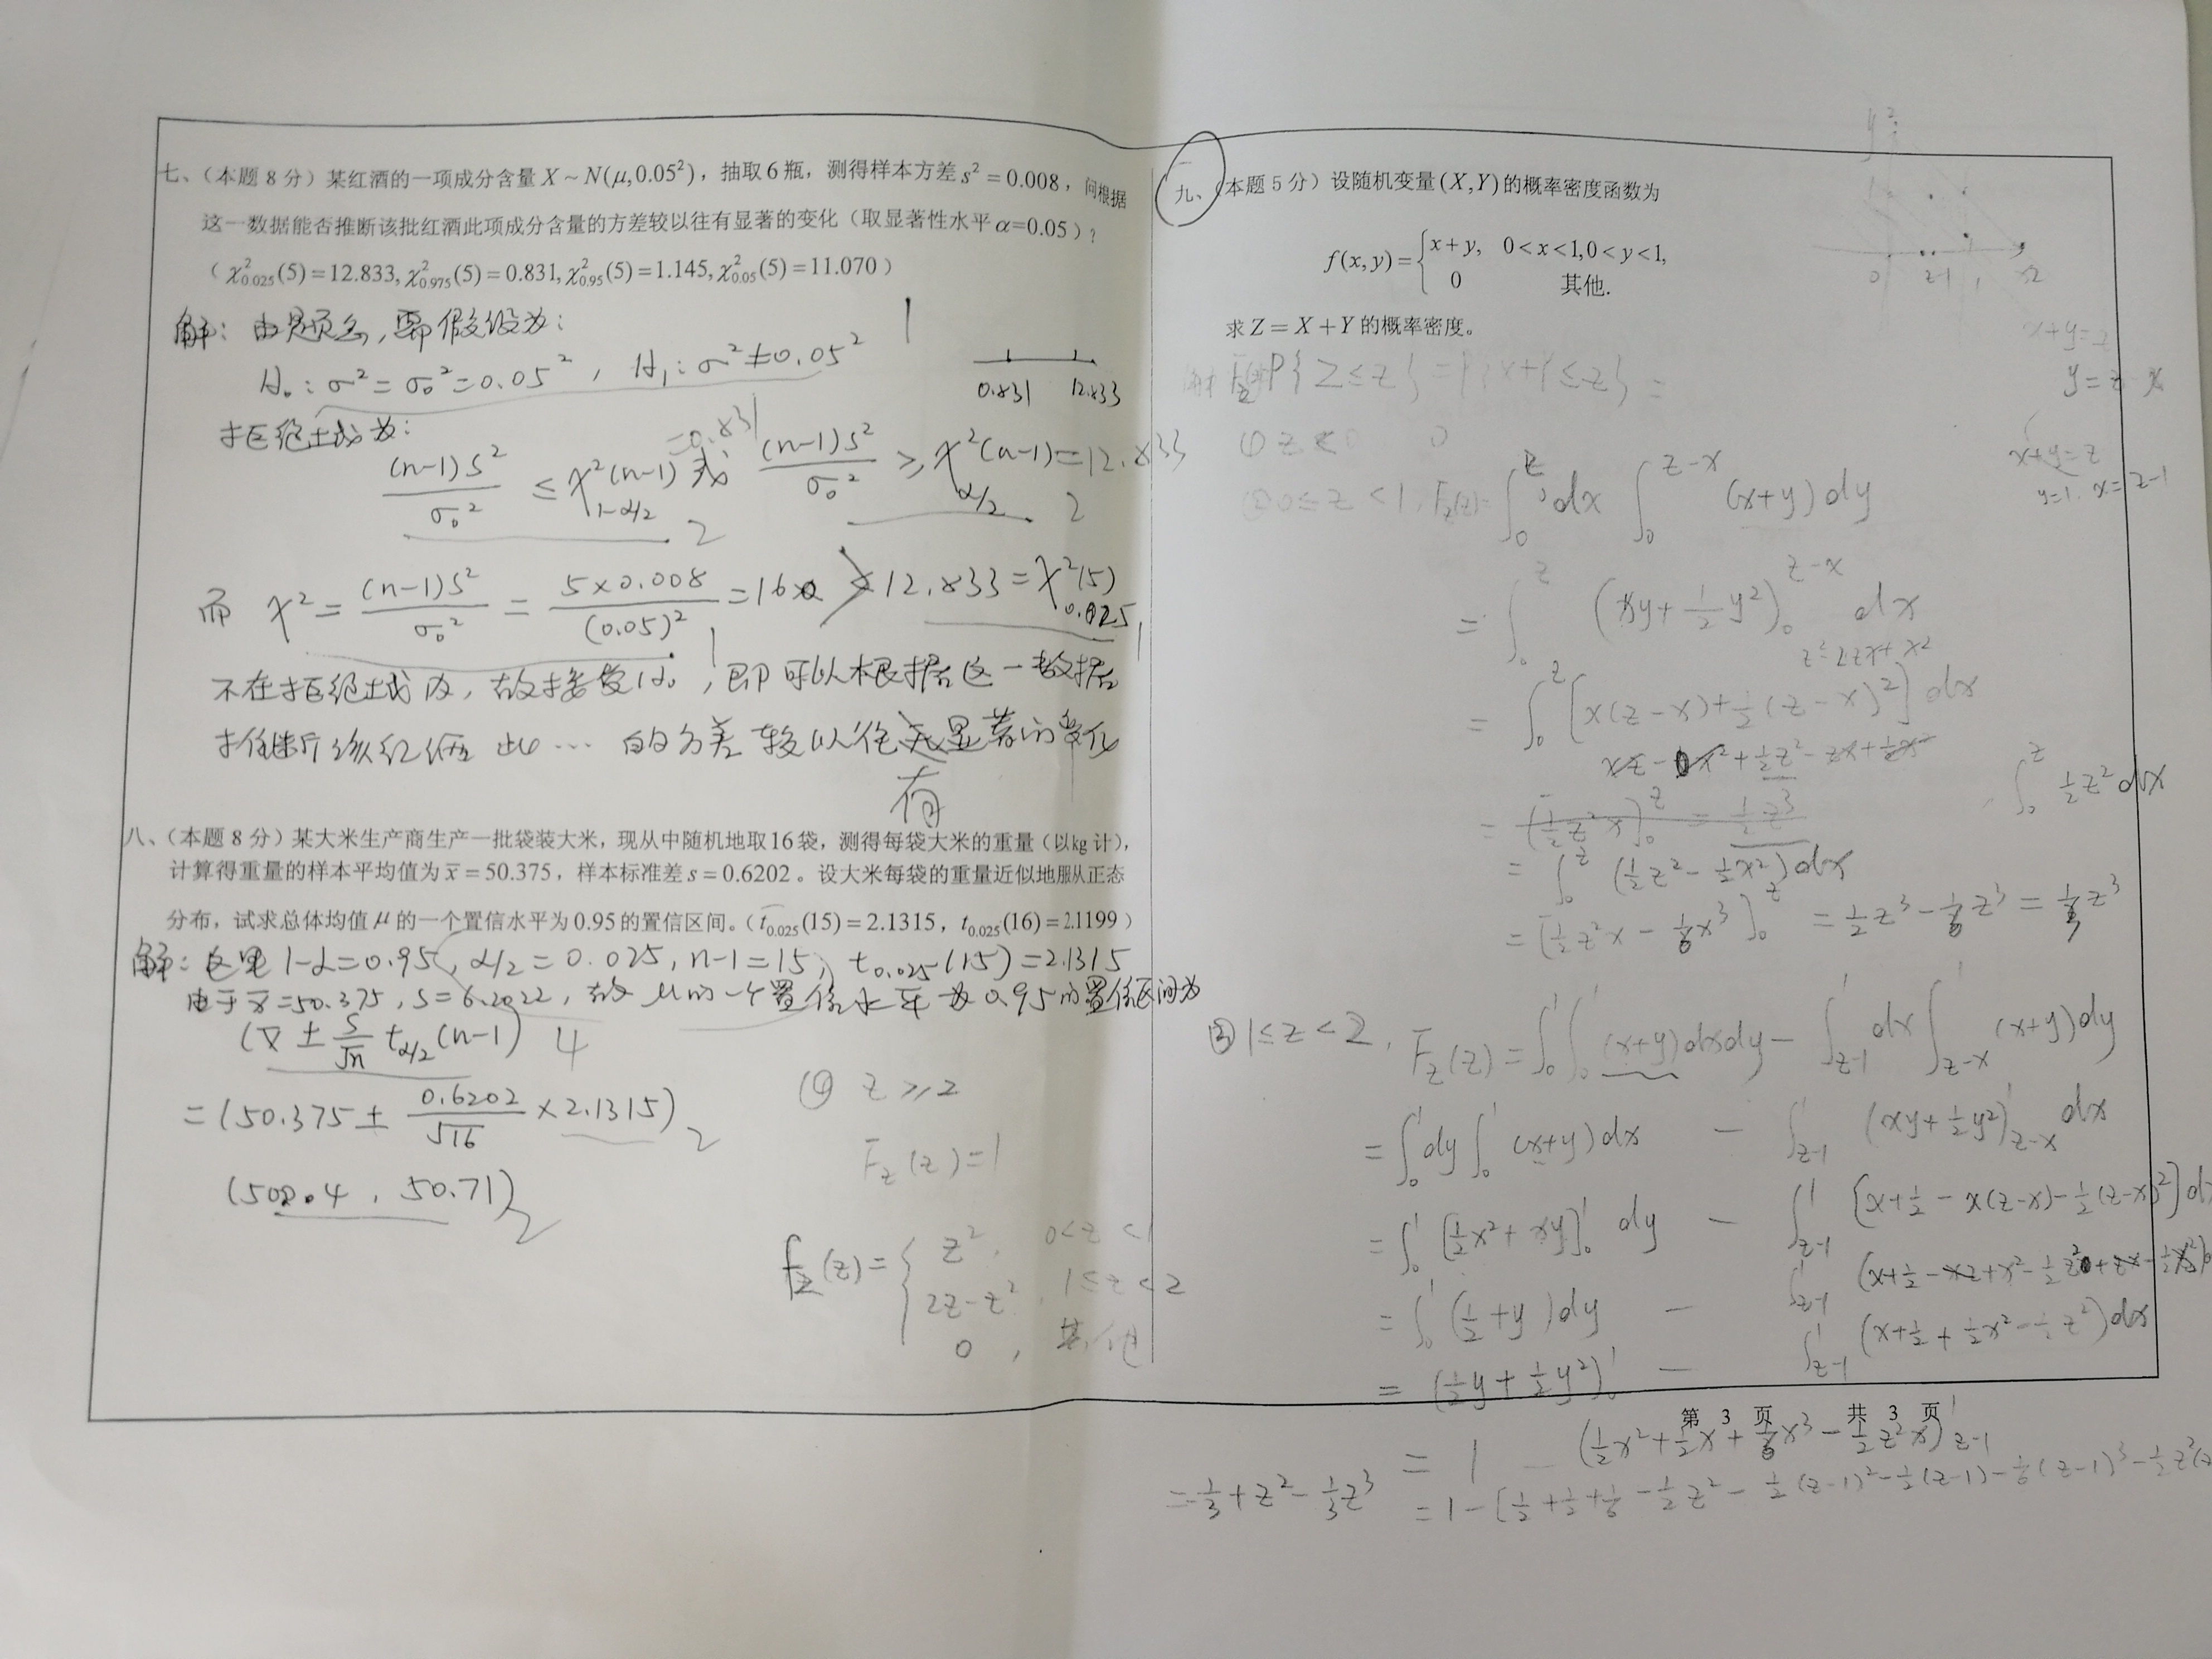 七、（本题 8 分）某红酒的一项成分含量 X ~ N(μ,0.05²)，抽取 6 瓶，测得样本方差 s² = 0.008，问根据
这一数据能否推断该批红酒此项成分含量的方差较以往有显著的变化（取显著性水平 α=0.05）？
（ χ²0.025(5) = 12.833, χ²0.975(5) = 0.831, χ²0.95(5) = 1.145, χ²0.05(5) = 11.070 ）
解：由题意，原假设为：
H₀ : σ² = σ₀² = 0.05² , H₁ : σ² ≠ 0.05²
1
0.831 12.833
拒绝域为：
(n-1)S²/σ₀² ≤ χ²1-α/2(n-1) = 0.831 或 (n-1)S²/σ₀² ≥ χ²α/2(n-1) = 12.833
2 2
而 χ² = (n-1)S²/σ₀² = 5×0.008/(0.05)² = 16 > 12.833 = χ²0.025(5)
1 1
不在拒绝域内，故接受H₀，即可以根据这一数据
推断该红酒此… 的方差较以往无显著的变化
有
八、（本题 8 分）某大米生产商生产一批袋装大米，现从中随机地取16袋，测得每袋大米的重量（以kg 计），
计算得重量的样本平均值为 x̄ = 50.375，样本标准差 s = 0.6202 。设大米每袋的重量近似地服从正态
分布，试求总体均值 μ 的一个置信水平为 0.95 的置信区间。（ t0.025(15) = 2.1315， t0.025(16) = 2.1199 ）
解：这里 1-α=0.95, α/2=0.025, n-1=15, t0.025(15)=2.1315
由于 x̄=50.375, S=6.2022, 故 μ的一个置信水平为0.95的置信区间为
(x̄ ± S/√n tα/2(n-1)) 4
= (50.375 ± 0.6202/√16 × 2.1315) 2
(50.04 , 50.71) 2
④ z ≥ 2
F_Z(z)=1
f_Z(z) = { z², 0<z<1
2z-z², 1≤z<2
0 , 其他
九、（本题 5 分）设随机变量 (X,Y) 的概率密度函数为
f(x,y) = { x+y, 0<x<1,0<y<1,
0 其他.
求 Z = X+Y 的概率密度。
y
1
0 z-1 1 2
x+y=z
y=z-x
x+y=z
y=1. x=z-1
解 F_Z(z) P{Z≤z} = P{X+Y≤z} =
① z<0 0
② 0≤z<1, F_Z(z)= ∫₀^z dx ∫₀^(z-x) (x+y)dy
= ∫₀^z (xy+½y²)₀^(z-x) dx
z²-2zx+x²
= ∫₀^z [x(z-x)+½(z-x)²] dx
xz-x²+½z²-zx+½x²
∫₀^z ½z²dx
= (½z²x)₀^z = ½z³
= ∫₀^z (½z²-½x²)dx
= [½z²x - ⅙x³]₀^z = ½z³-⅙z³ = ⅓z³
③ 1≤z<2, F_Z(z) = ∫₀¹∫₀¹ (x+y)dxdy - ∫_(z-1)^1 dx∫_(z-x)^1 (x+y)dy
= ∫₀¹dy∫₀¹ (x+y)dx - ∫_(z-1)^1 (xy+½y²)_(z-x)^1 dx
= ∫₀¹ [½x²+xy]₀¹ dy - ∫_(z-1)^1 [x+½-x(z-x)-½(z-x)²]dx
∫_(z-1)^1 (x+½-xz+x²-½z²+zx-½x²)
= ∫₀¹ (½+y)dy - ∫_(z-1)^1 (x+½+½x²-½z²)dx
= (½y+½y²)₀¹ -
第 3 页 共 3 页
= 1 - (½x²+½x+⅙x³-½z²x)_(z-1)^1
= 1-[½+½+⅙-½z²-½(z-1)²-½(z-1)-⅙(z-1)³-½z²(z
= -⅓+z²-⅓z³